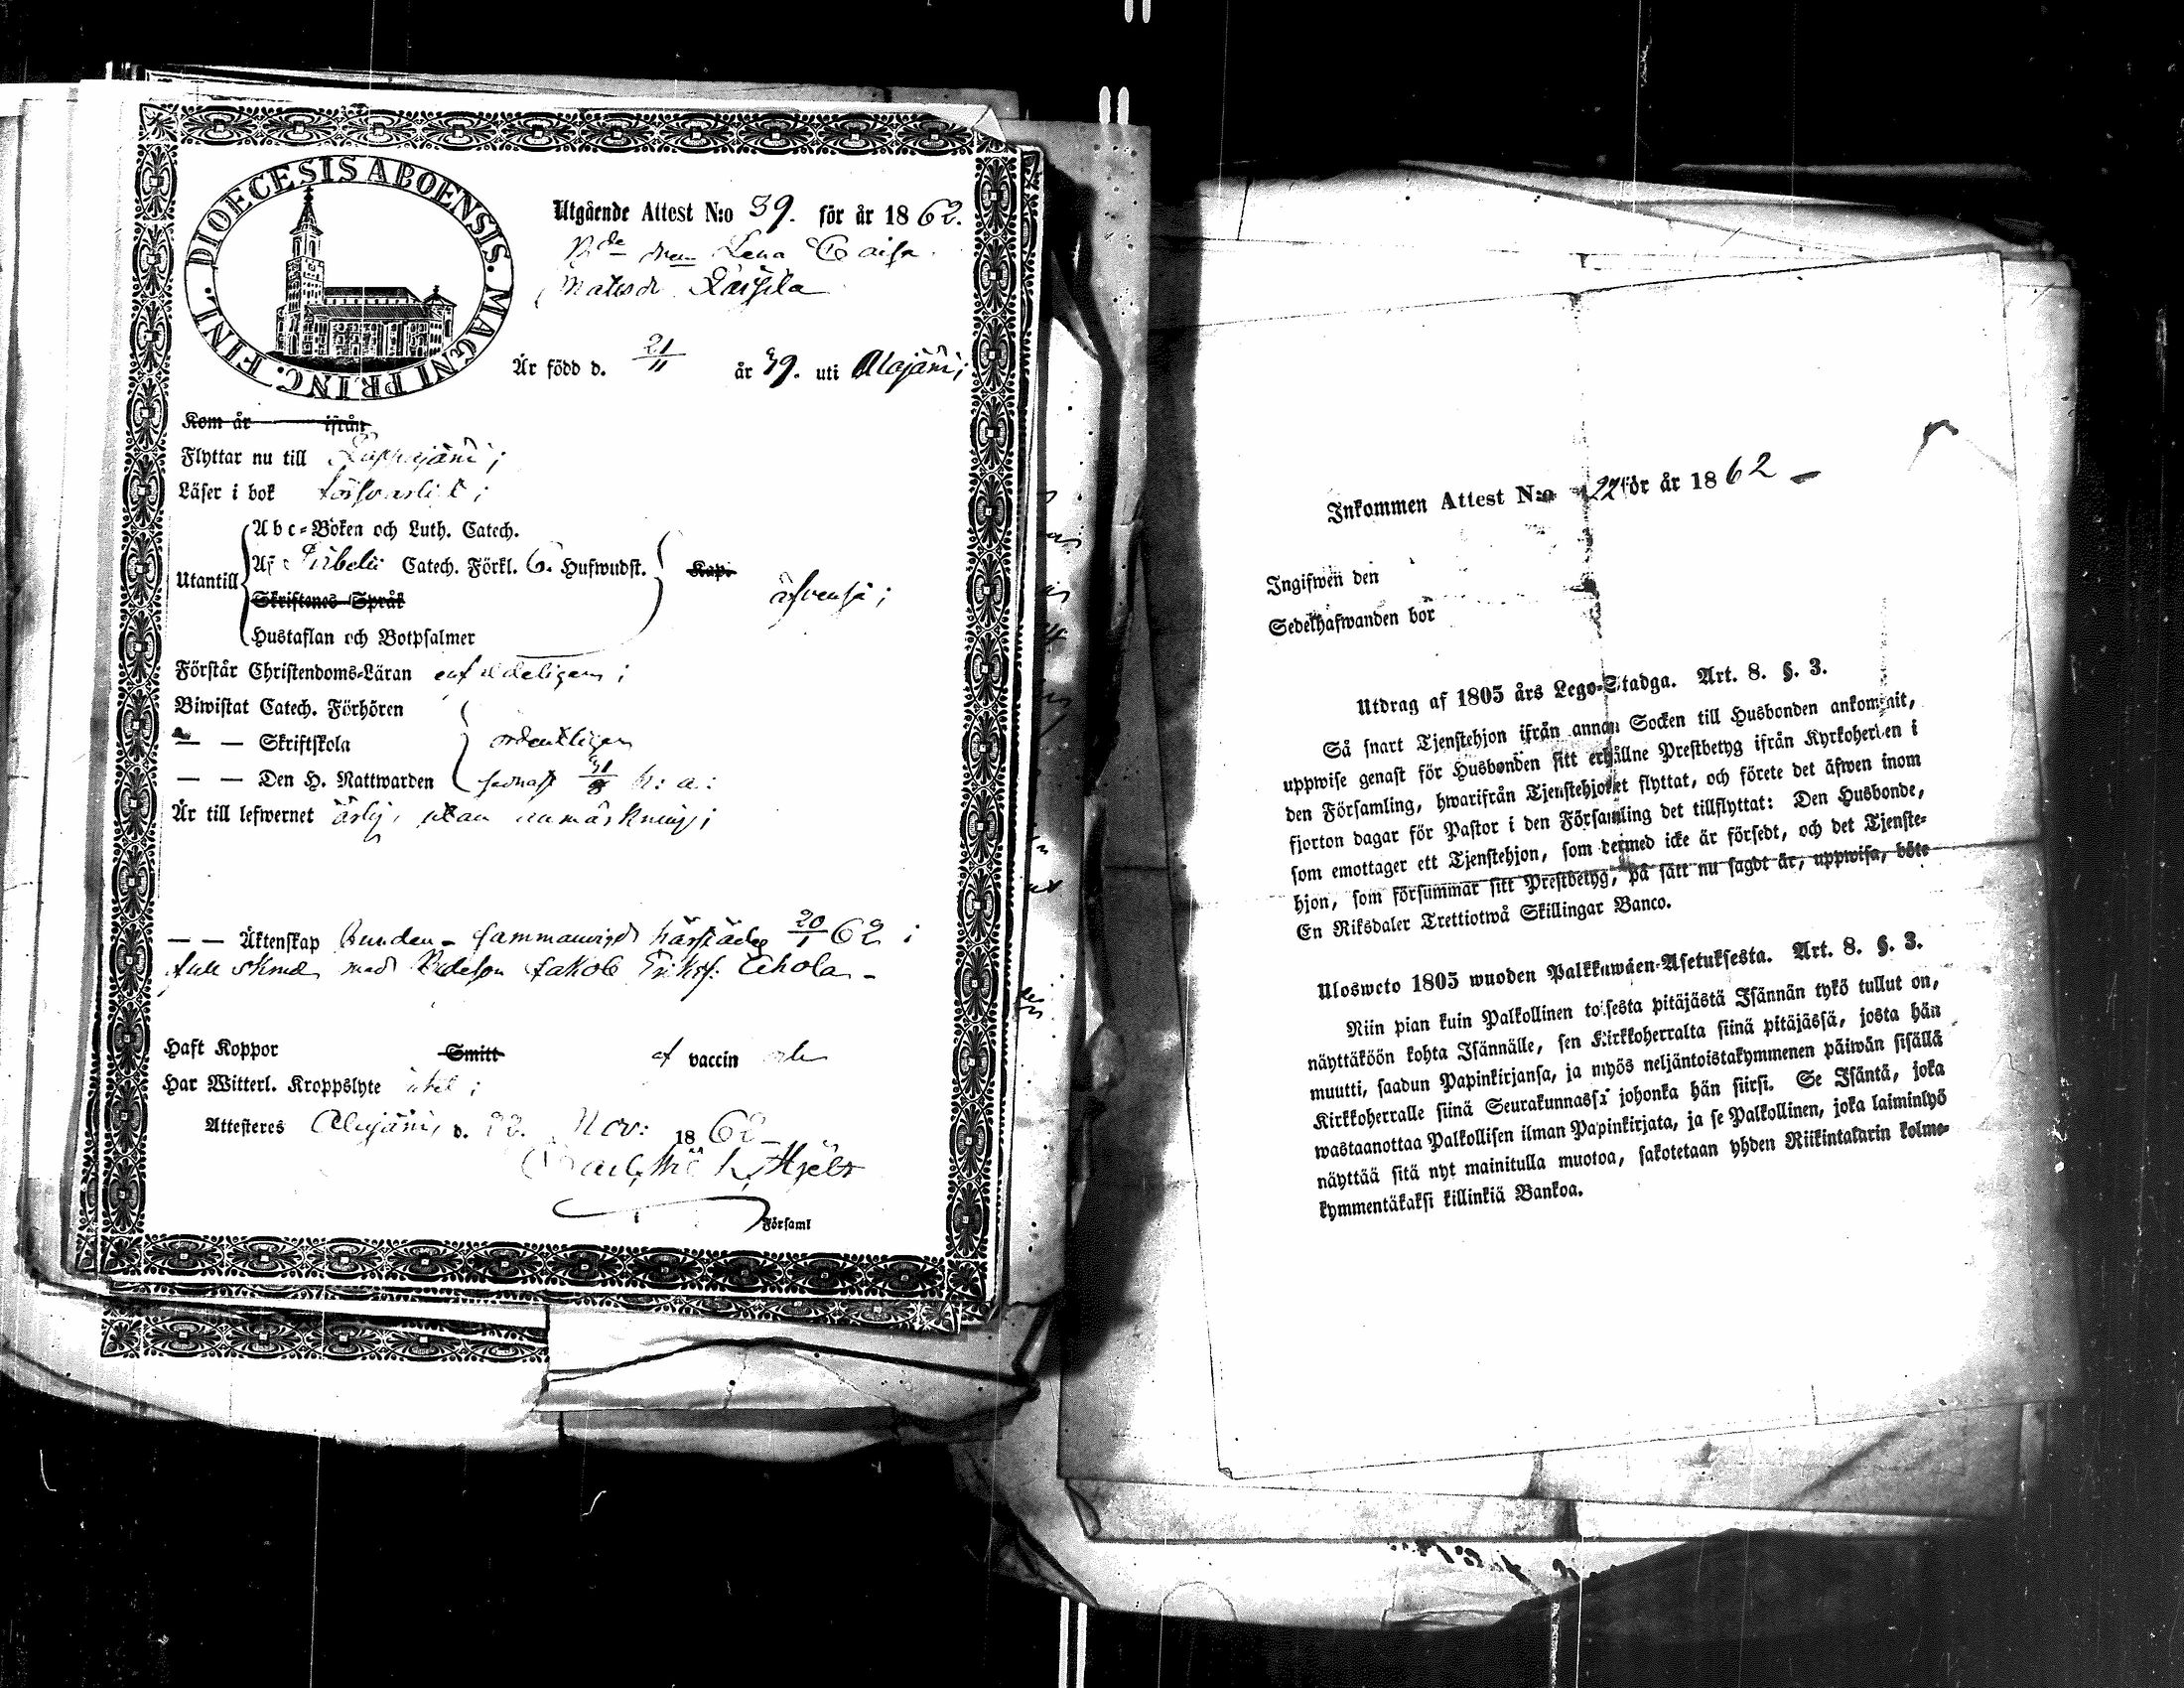 DIOECESIS ABOENSIS. MAGNI PRINC. FINL.
Utgående Attest N:o 39. för år 1862.
Lena Caisa
Matsdr
Är född d. 21/11 år 39. uti Alajärvi;
Kom år ifrån
Flyttar nu till Lappajärvi;
Läser i bok försvarligt;
Abc-Boken och Luth. Catech.
Utantill Af Catech. Förkl. 6. Hufwudst. Kap. äfvenså;
Skriftenes Språk
Hustaflan och Botpsalmer
Förstår Christendoms-Läran enfaldeligen;
Biwistat Catech. Förhören
— — Skriftskola ordentligen
— — Den H. Nattwarden senast h: a:
Är till lefwernet ärlig, utan anmärkning;
— — Äktenskap bunden - sammanvigd härstädes 20/1 62;
med Bdeson Jakob Eriks:
Haft Koppor Smitt af vaccin
Har Witterl. Kroppslyte intet;
Attesteres Alajärvi d. 22. Nov: 1862
Församl
Inkommen Attest N:o 22 för år 1862 —
Ingifwen den
Sedelhafwanden bor
Utdrag af 1805 års Lego-Stadga. Art. 8. §. 3.
Så snart Tjenstehjon ifrån annan Socken till Husbonden ankommit,
uppwise genast för Husbonden sitt erhållne Prestbetyg ifrån Kyrkoherden i
den Församling, hwarifrån Tjenstehjonet flyttat, och förete det äfwen inom
fjorton dagar för Pastor i den Församling det tillflyttat: Den Husbonde,
som emottager ett Tjenstehjon, som dermed icke är försedt, och det Tjenste-
hjon, som försummar sitt Prestbetyg, på sätt nu sagdt är, uppwisa, böte
En Riksdaler Trettiotwå Skillingar Banco.
Ulosweto 1805 wuoden Palkkawäen-Asetuksesta. Art. 8. §. 3.
Niin pian kuin Palkollinen toisesta pitäjästä Isännän tykö tullut on,
näyttäköön kohta Isännälle, sen Kirkkoherralta siinä pitäjässä, josta hän
muutti, saadun Papinkirjansa, ja myös neljäntoistakymmenen päiwän sisällä
Kirkkoherralle siinä Seurakunnassa johonka hän siirsi. Se Isäntä, joka
wastaanottaa Palkollisen ilman Papinkirjata, ja se Palkollinen, joka laiminlyö
näyttää sitä nyt mainitulla muotoa, sakotetaan yhden Riikintalarin kolme-
kymmentäkaksi killinkiä Bankoa.